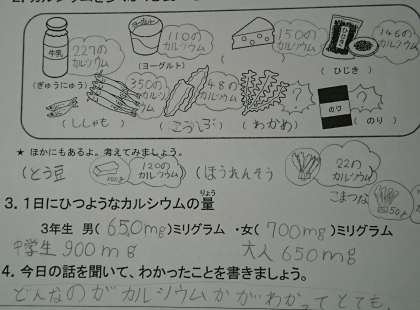 牛乳
227のカルシウム
(ぎゅうにゅう)
ヨーグルト
110のカルシウム
(ヨーグルト)
150のカルシウム
ひじき
146のカルシウム
(ひじき)
350のカルシウム
(ししゃも)
48のカルシウム
(こうぶ)
?
(わかめ)
のり
?
(のり)
★ ほかにもあるよ。考えてみましょう。
(とう豆
120のカルシウム
) (ほうれんそう
22のカルシウム
)
こまつな
3. 1日にひつようなカルシウムの量
りょう
3年生 男(650mg)ミリグラム ・女(700mg)ミリグラム
中学生 900mg 大人 650mg
4. 今日の話を聞いて、わかったことを書きましょう。
どんなのがカルシウムかがわかってとても、